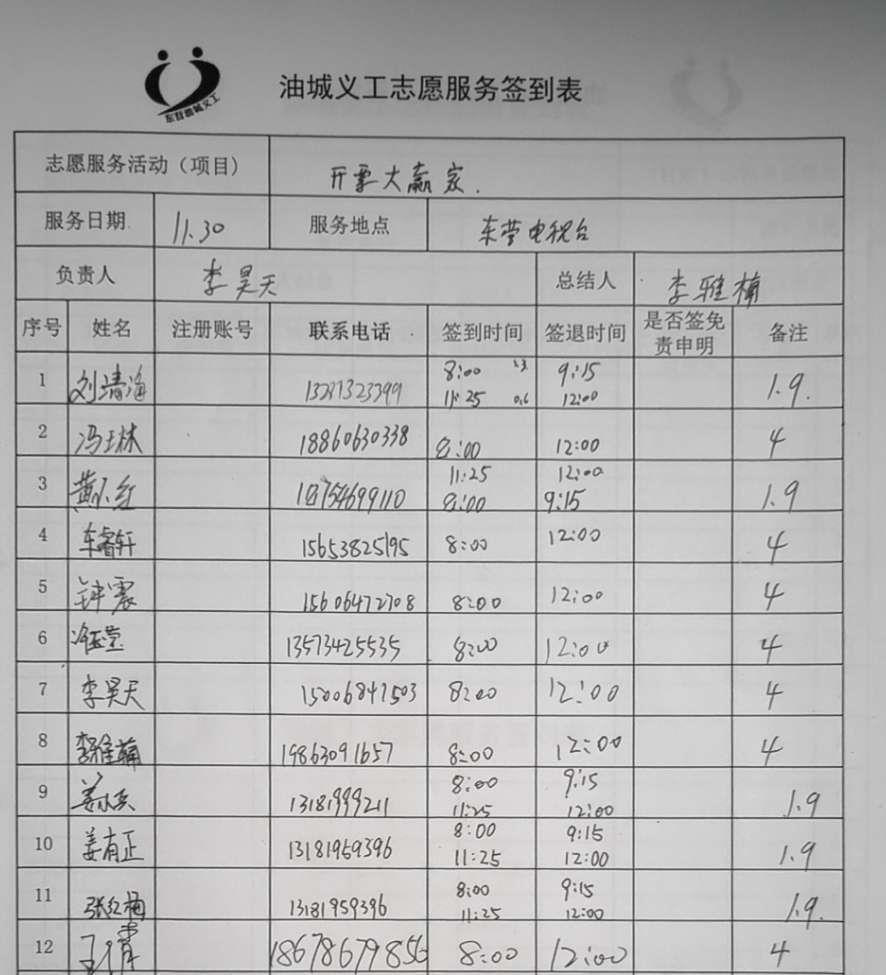 油城义工志愿服务签到表
东营油城义工
志愿服务活动（项目） 开票大赢家.
服务日期 11.30 服务地点 东营电视台
负责人 李昊天 总结人 李雅楠
序号 姓名 注册账号 联系电话 签到时间 签退时间 是否签免责申明 备注
1 8:00 9:15 1.9.
11:25 0.6 12:00
2 冯玉林 18860630338 8:00 12:00 4
3 11:25 12:00
18754699110 8:00 9:15 1.9
4 车睿轩 15653825195 8:00 12:00 4
5 钟震 15606472708 8:00 12:00 4
6 13573425535 8:00 12:00 4
7 李昊天 15006841503 8:00 12:00 4
8 李雅楠 19863091657 8:00 12:00 4
9 8:00 9:15
13181999211 11:25 12:00 1.9
10 姜有正 13181959396 8:00 9:15 1.9
11:25 12:00
11 张红梅 13181959396 8:00 9:15 1.9.
11:25 12:00
12 18678679856 8:00 12:00 4